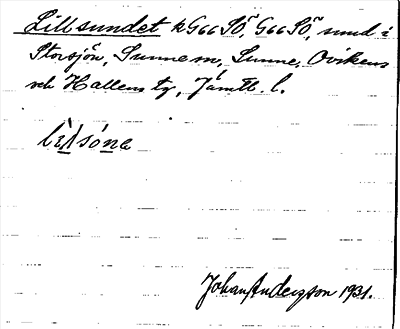 Lillsundet k G66 SÖ, G66 SÖ, sund i
Storsjön, Sunne m, Sunne, Ovikens
och Hallens tg, Jämtl. l.
lìl̀sóna
Johan Anderzson 1931.